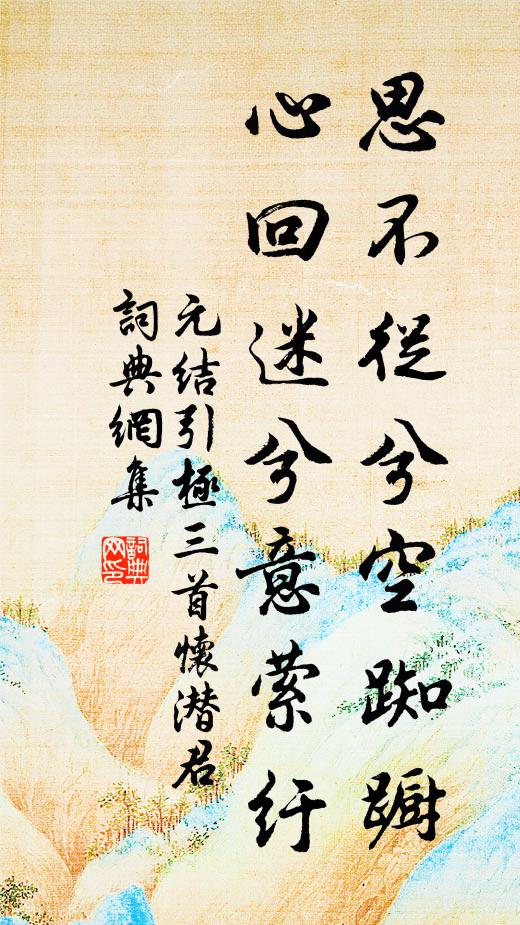 思不從兮空踟蹰
心回迷兮意縈紆
元结引極三首懷潜君
詞典網集
詞典
网印